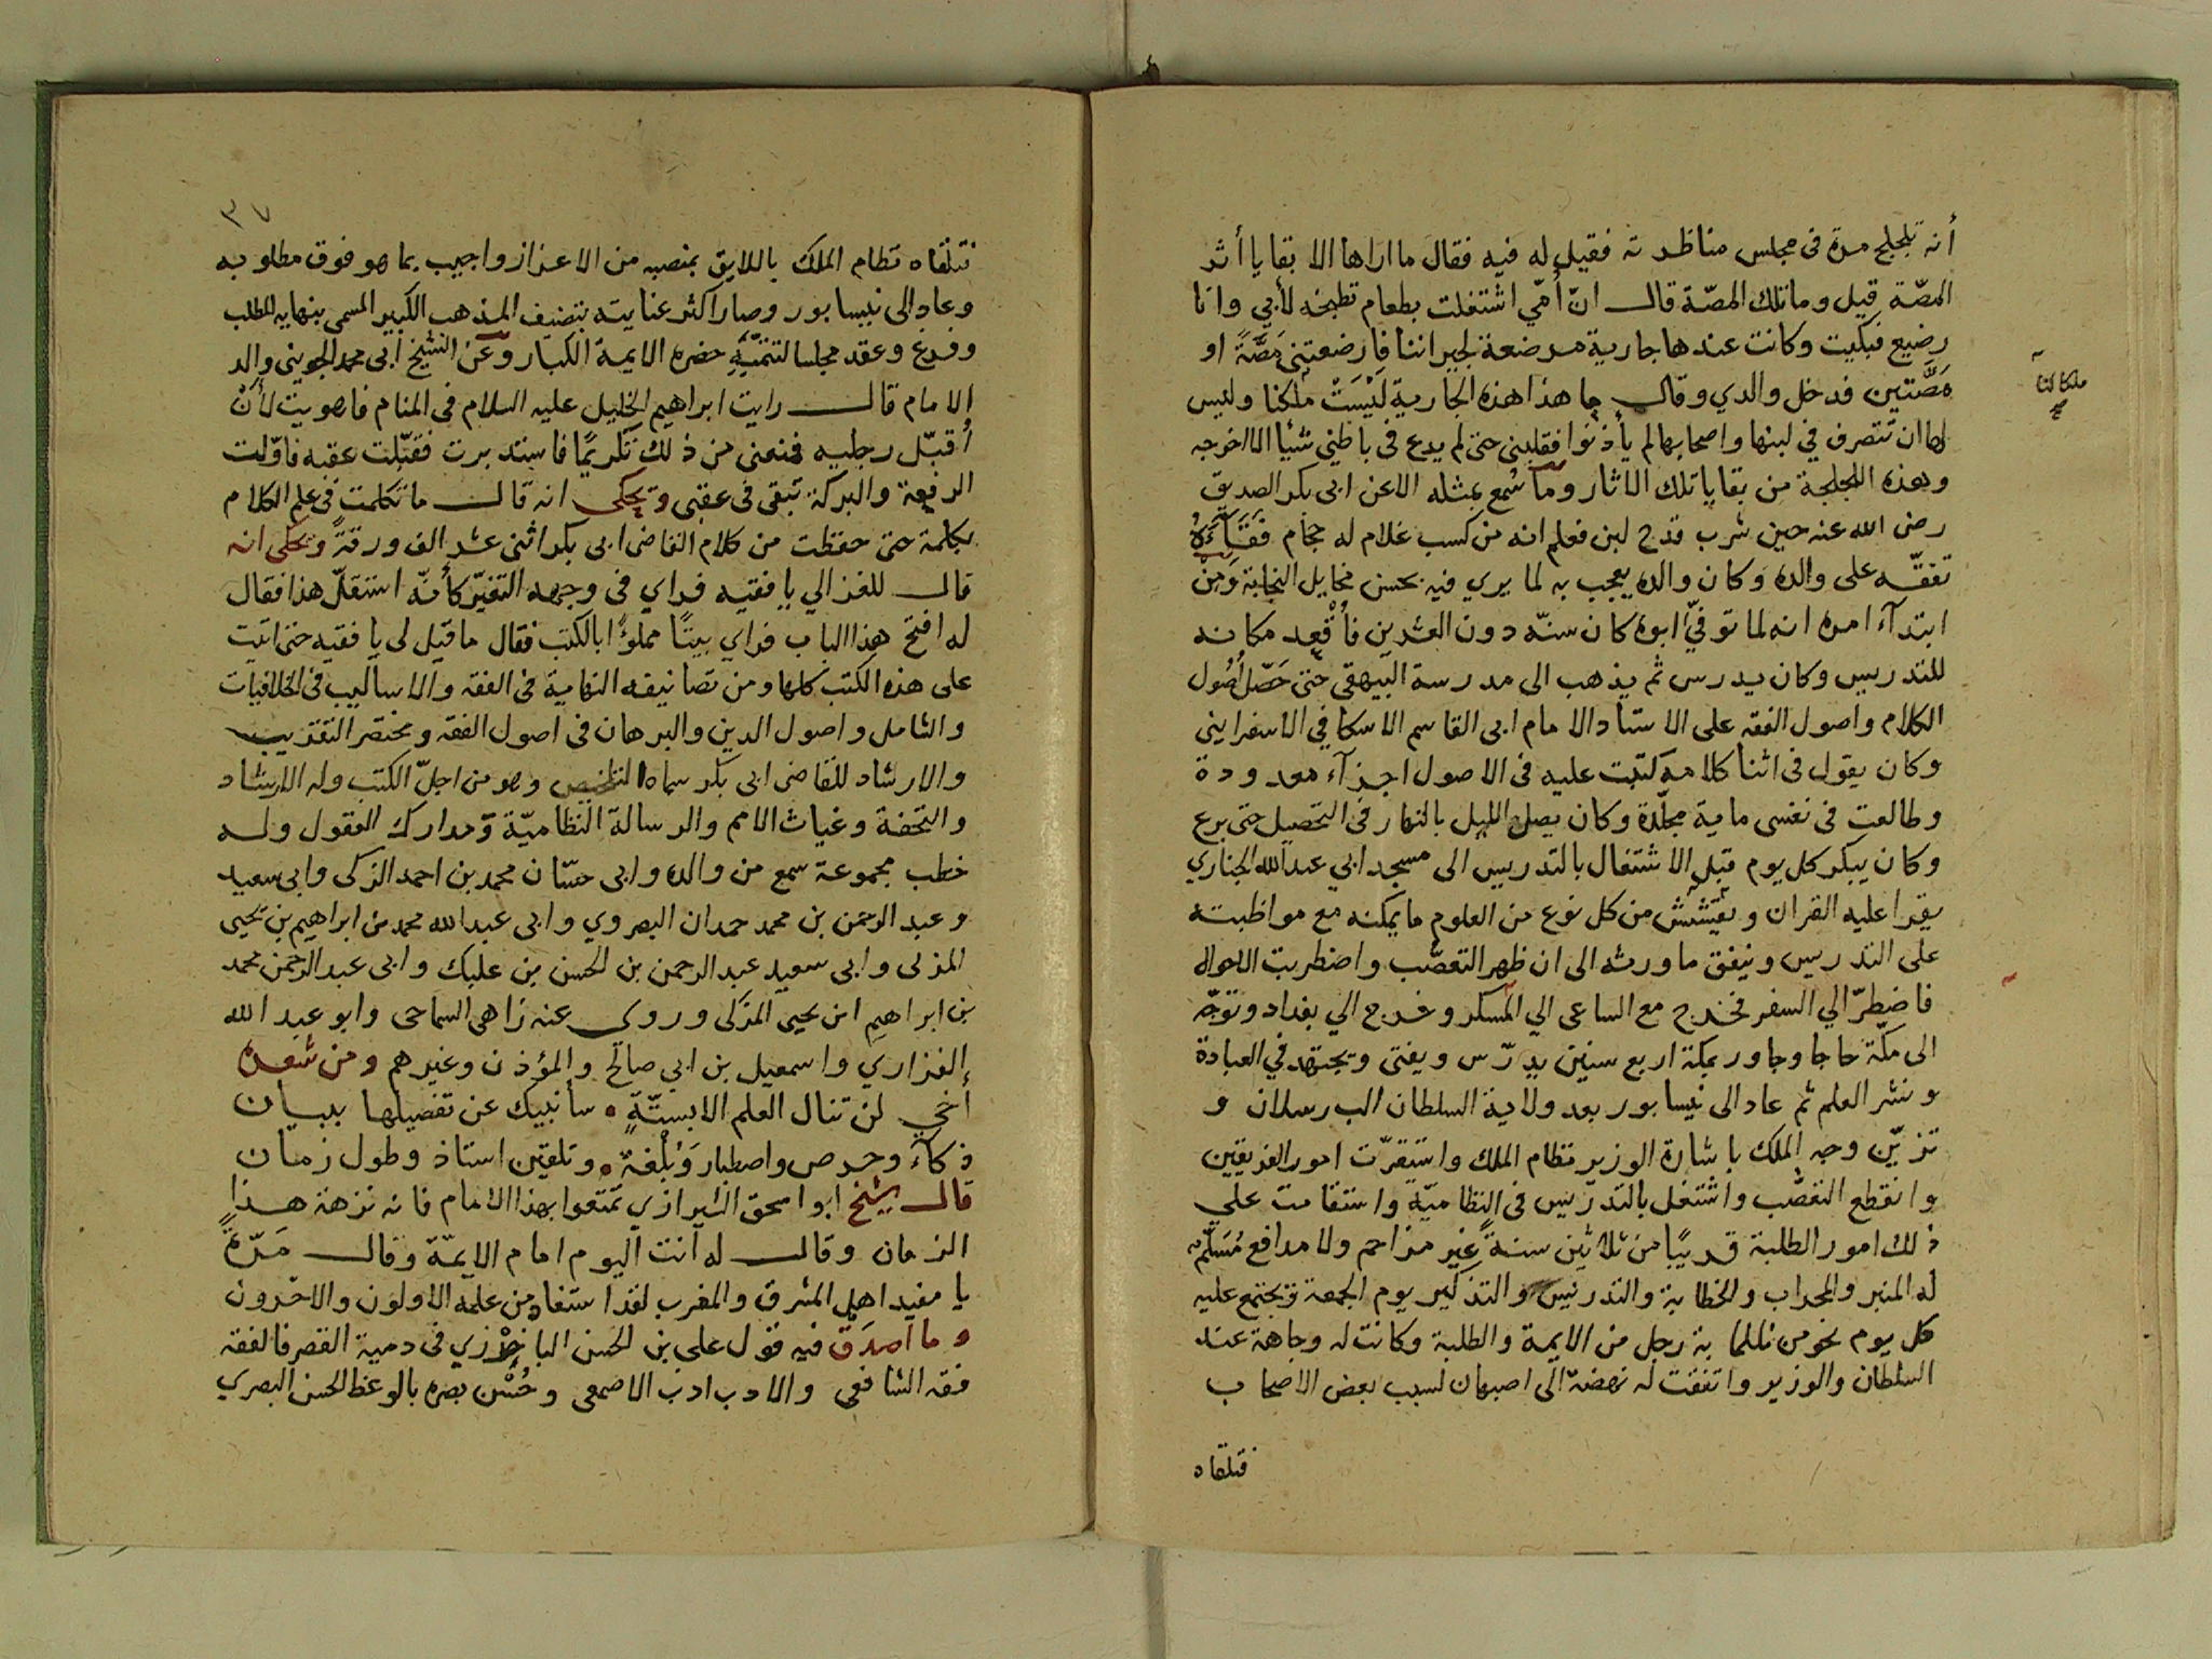 أنه تلجلج مدة في مجلس مناظرته فقيل له فيه فقال ما اراها الا بقايا أثر
المصّة قيل وما تلك المصّة قال انّ أمّي اشتغلت بطعام تطبخه لأبي وانا
رضيع فبكيت وكانت عندها جارية مرضعة لجيراننا فارضعتني مَصَّةً او
مَصَّتين فدخل والدي وقال ما هذا هذه الجارية لَيْسَتْ ملكنا وليس
لها ان تتصرف في لبنها واصحابها لم يأذنوا فقلبني حتى لم يدع في باطني شيئا الا اخرجه
وهذه اللجلجة من بقايا تلك الاثار وما سُمع بمثله الا عن ابي بكر الصديق
رضي الله عنه حين شرب قدح لبن فعلم انه من كسب غلام له حجام فَتَقَيَّأَهُ
تفقّه على والده وكان والده يعجب به لما يري فيه بحسن مخايل النجابة وَمِنْ
ابتدآء امره انه لما توفّي ابوه كان سنّه دون العشرين فأُقْعِد مكانه
للتدريس وكان يدرس ثم يذهب الى مدرسة البيهقي حتى حَصّل أُصُول
الكلام واصول الفقه على الاستاد الامام ابي القاسم الاسكافي الاسفرايني
وكان يقول في اثنا كلامه كتبت عليه في الاصول اجزآء معدودة
وطالعت في نفسي ماية مجلّدة وكان يصل الليل بالنهار في التحصيل حتى برع
وكان يبكر كل يوم قبل الاشتغال بالتدريس الى مسجد ابي عبد الله الجنازي
يقرا عليه القران و يقتبس من كل نوع من العلوم ما يمكنه مع مواظبته
على التدريس وينفق ما ورثه الى ان ظهر التعصّب واضطربت الاحوال
فاضطرّ الي السفر فخرج مع الساعى الي المسكر وخرج الي بغداد وتوجّه
الى مكّة حاجا وجاور بمكة اربع سنين يدرّس ويفتى ويجتهد في العبادة
ونشر العلم ثم عاد الى نيسابور بعد ولاية السلطان الب رسلان و
تزيّن وجه الملك باشارة الوزير نظام الملك واستقرّت امور الفريقين
وانقطع التعصّب واشتغل بالتدريس في النظاميّة واستقامت علي
ذلك امور الطلبة قريبًا من ثلاثين سنةً غير مزاحم ولا مدافع مُسَلّم
له المنبر والمحراب والخطابة والتدريس والتذكير يوم الجمعة ويجتمع عليه
كل يوم نحو من ثلثماية رجل من الايمة والطلبة وكانت له وجاهة عند
السلطان والوزير واتفقت له نهضة الى اصبهان لسبب بعض الاصحاب
فتلقاه
ملكا لنا
صح
٣٧
فتلقاه نظام الملك باللايق بمنصبه من الاعزاز واجيب بما هو فوق مطلوبه
وعاد الى نيسابور وصار اكثر عنايته بتصنيف المذهب الكبير المسمى بنهاية المطلب
وفرغ وعقد مجلسا لتتمّتِهِ حضره الايمة الكبار وعن الشيخ ابي محمد الجويني والد
الامام قال رايت ابراهيم الخليل عليه السلام في المنام فاهويت لأَنْ
أُقبّل رجليه فمنعني من ذلك تكريمًا فاستدبرت فقبّلت عقبه فاوّلت
الرفعة والبركة تبقى في عقبى ويحكى انه قال ما تكلمت في علم الكلام
بكلمة حتى حفظت من كلام القاضى ابي بكر اثنى عشر الف ورقةً وحكى انه
قال للغزالي يا فقيه فراي في وجهه التغيّر كأنّه استقلّ هذا فقال
له افتح هذا الباب فراي بيتًا مملوًا بالكتب فقال ما قيل لي يا فقيه حتى اتيت
على هذه الكتب كلها ومن تصانيفه النهاية في الفقه والاساليب في الخلافيات
والشامل واصول الدين والبرهان في اصول الفقه ومختصر التقريب
والارشاد للقاضى ابي بكر سماه التلخيص وهو من اجلّ الكتب وله الارشاد
والتحفة وغياث الامم والرسالة النظاميّة ومدارك العقول وله
خطب مجموعة سمع من والده وابي حسّان محمد بن احمد الزكى وابي سعيد
وعبد الرحمن بن محمد حمدان البصروي وابي عبد الله محمد بن ابراهيم بن يحيى
المزكى وابي سعيد عبد الرحمن بن الحسن بن عليك وابي عبد الرحمن محمد
بن ابراهيم ابن يحيى المزكى وروى عنه زاهر السماحى وابو عبد الله
الفزاري واسمعيل بن ابي صالح والمؤذن وغيرهم ومن شعره
أخي لن تنال العلم الا بستّةٍ ۰ سأنبيك عن تفصيلها ببيان
ذكآء وحرص واصطبار وَبُلْغة ۰ وتلقين استاذ وطول زمان
قال الشيخ ابو اسحق الشيرازي تمتعوا بهذا الامام فانه نزهة هذا
الزمان وقال له انت اليوم امام الايمّة وقال مَرّةً
يا مفيد اهل المشرق والمغرب لقد استفاد من علمه الاولون والاخرون
وما اصدَق فيه قول على بن الحسن الباخرزي في دمية القصر فالفقه
فقه الشافعى والادب ادب الاصمعى وحُسْن بصره بالوعظ الحسن البصري